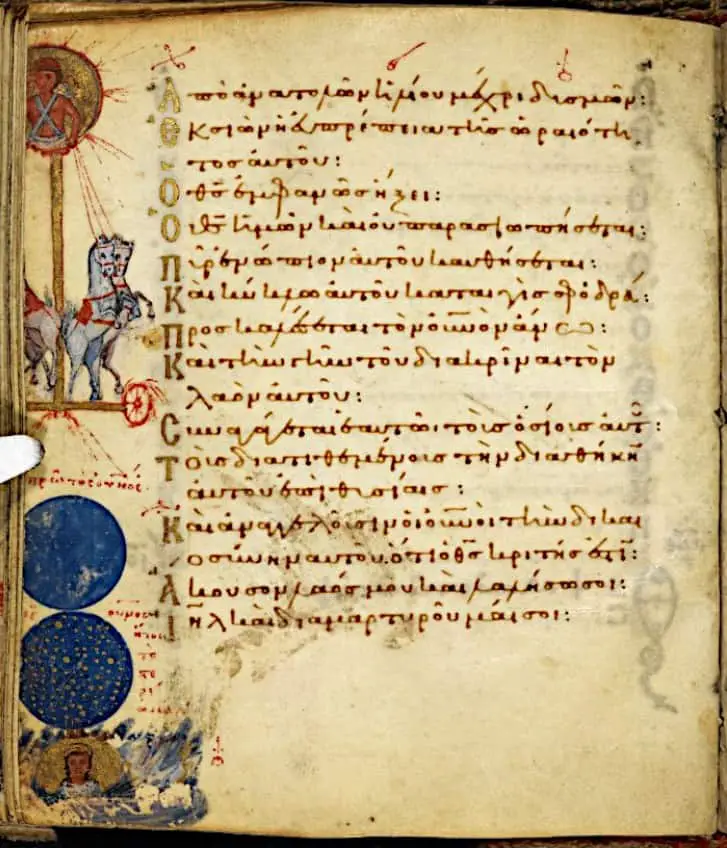 Ἀπὸ ἀνατολῶν ἡλίου μέχρι δυσμῶν:
Ἐκ σιὼν ἡ εὐπρέπεια τῆς ὡραιότη
τος αὐτοῦ:
Ὁ θς ἐμφανῶς ἥξει:
Ὁ θς ἡμῶν καὶ οὐ παρασιωπήσεται:
Πῦρ ἐνώπιον αὐτοῦ καυθήσεται:
Καὶ κύκλω αὐτοῦ καταιγὶς σφοδρά:
Προσκαλέσεται τὸν οὐνὸν ἄνω:
Καὶ τὴν γῆν τοῦ διακρῖναι τὸν
λαὸν αὐτοῦ:
Συναγάγεται ἑαυτῶ τοὺς ὁσίους αὐτ:
Τοὺς διατιθεμένους τὴν διαθήκην
αὐτοῦ ἐπὶ θυσίαις:
Καὶ ἀναγγελοῦσιν οἱ οὐνοὶ τὴν δικαι
οσύνην αὐτοῦ. ὅτι ὁ θς κριτής ἐστι:
Ἄκουσον λαός μου καὶ λαλήσω σοι:
Ιηλ καὶ διαμαρτύρομαί σοι:
πρῶτος οὐνός.